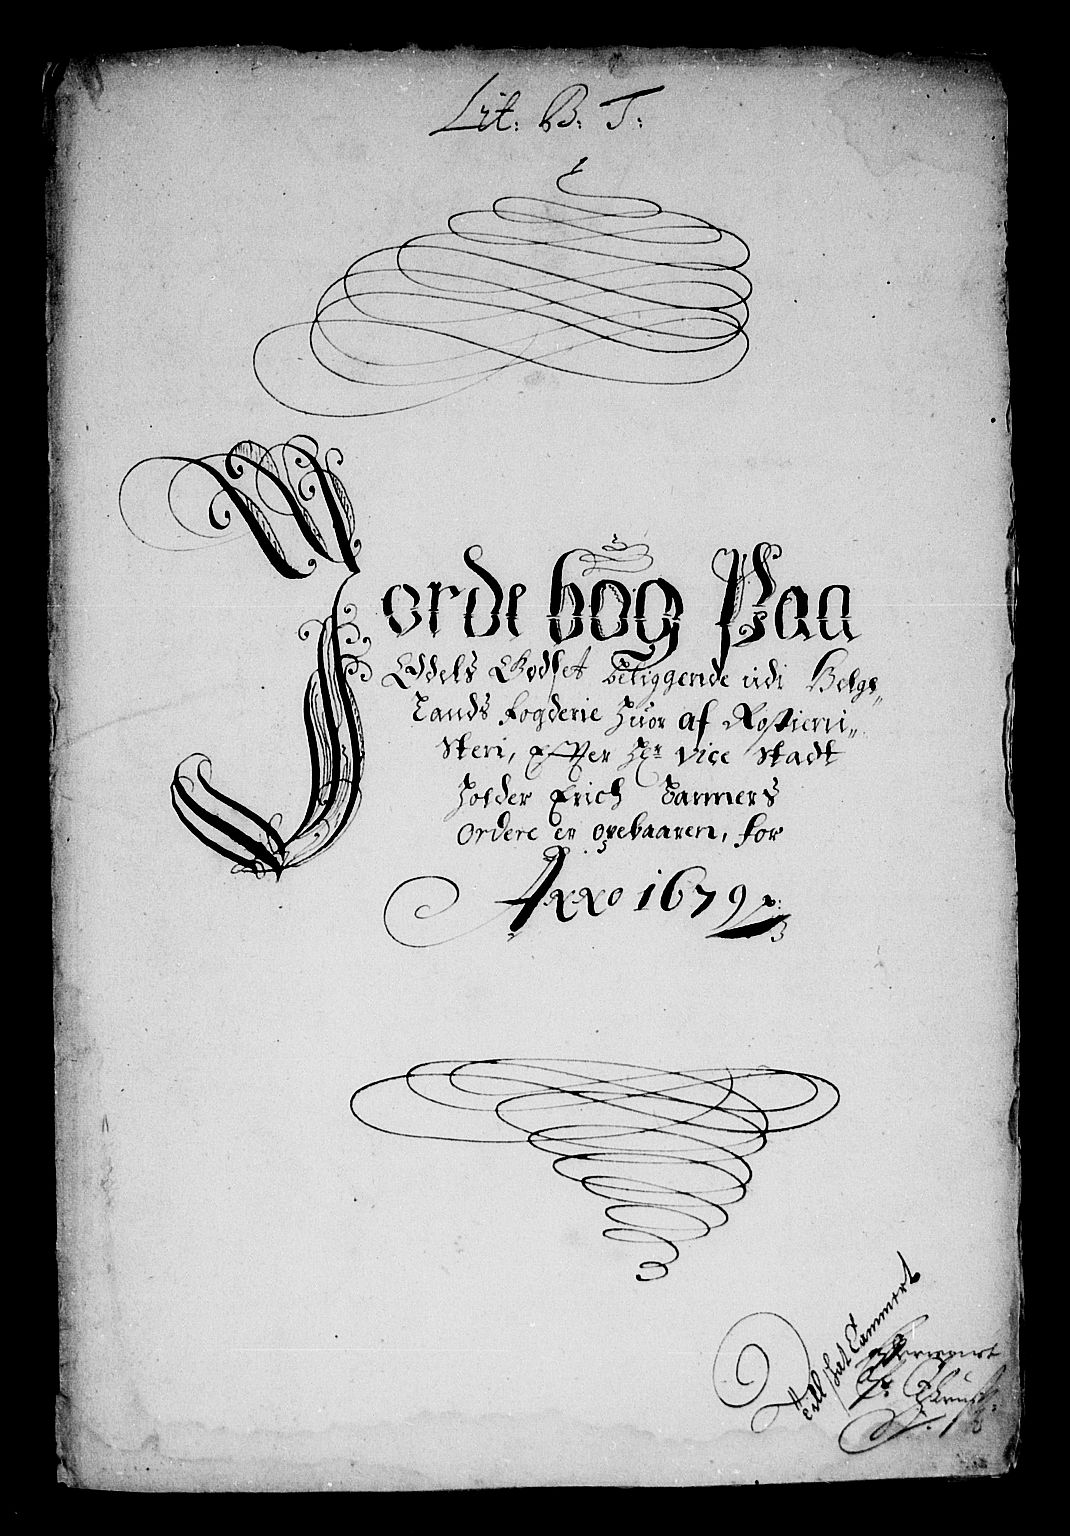 Lit: B: T:
Jordebog Paa
Eddels Godset beliggende udi Helge„
Lands fogderie Huor af Rostieni„
steri, Effter Hr: Vice Stadt
Holder Erich Banners
Ordere er opebaaren, for
Anno 1679